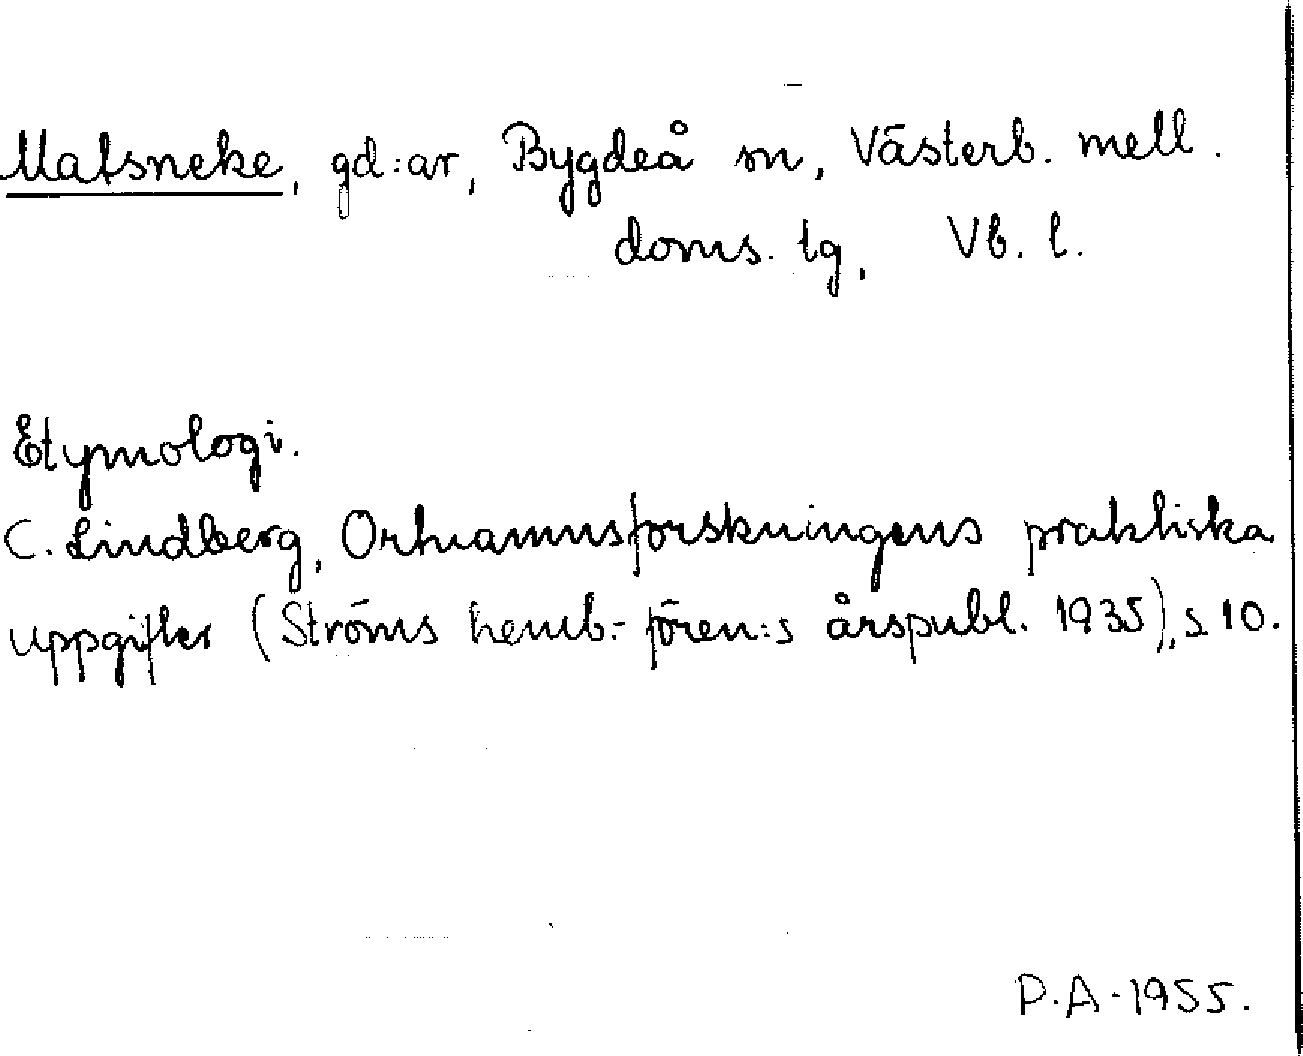 Matsneke, gd:ar, Bygdeå sn, Västerb. mell.
doms. tg, Vb. l.
Etymologi.
C. Lindberg, Ortnamnsforskningens praktiska
uppgifter (Ströms hemb.- fören:s årspubl. 1935), s 10.
P.A. 1955.